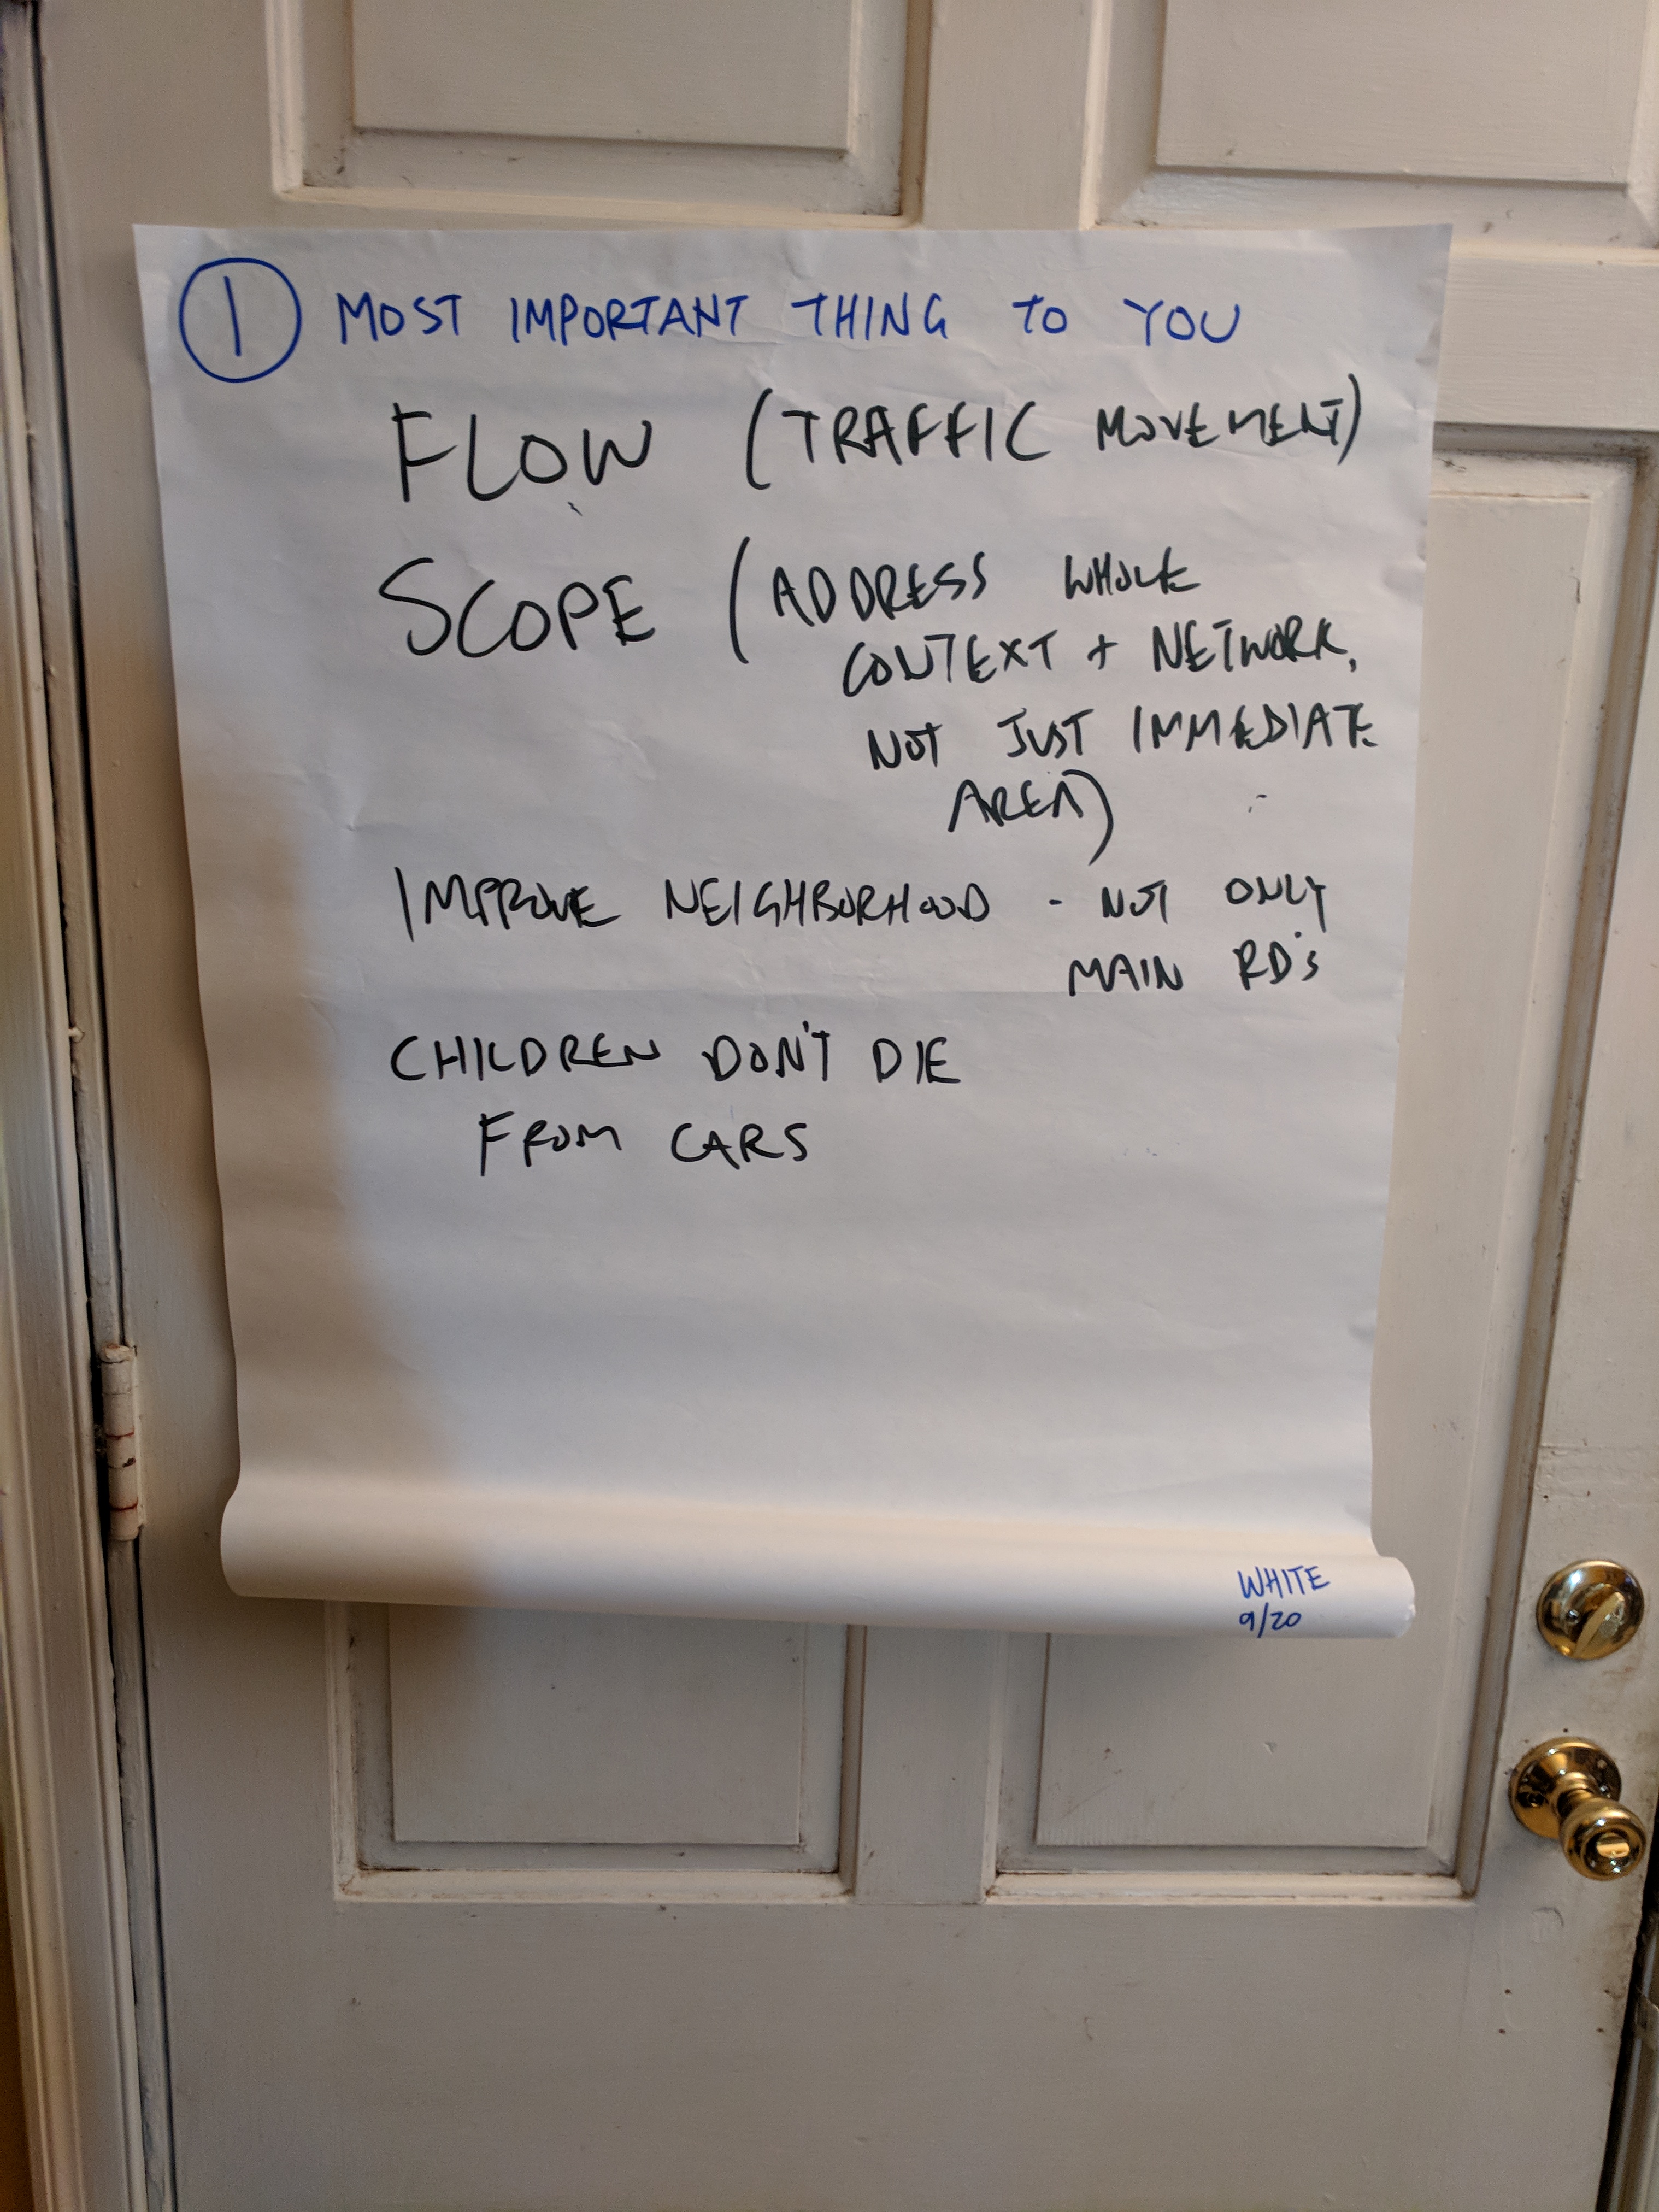 1 MOST IMPORTANT THING TO YOU
FLOW (TRAFFIC MOVEMENT)
SCOPE (ADDRESS WHOLE
CONTEXT + NETWORK,
NOT JUST IMMEDIATE
AREA)
IMPROVE NEIGHBORHOOD - NOT ONLY
MAIN RD'S
CHILDREN DON'T DIE
FROM CARS
WHITE
9/20